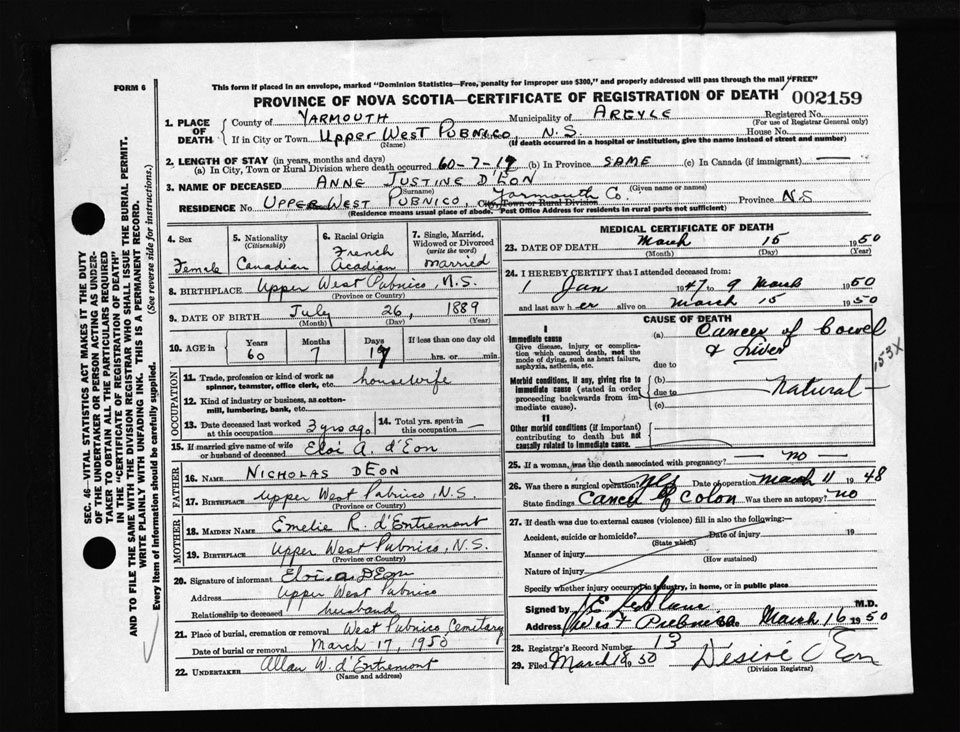 FORM 6
This form if placed in an envelope, marked "Dominion Statistics—Free, penalty for improper use $300," and properly addressed will pass through the mail "FREE"
PROVINCE OF NOVA SCOTIA—CERTIFICATE OF REGISTRATION OF DEATH 002159
1. PLACE OF DEATH
County of YARMOUTH Municipality of ARGYLE Registered No.
(For use of Registrar General only)
If in City or Town Upper West Pubnico, N.S. Street House No.
(Name) (If death occurred in a hospital or institution, give the name instead of street and number)
2. LENGTH OF STAY (in years, months and days)
(a) In City, Town or Rural Division where death occurred 60-7-19 (b) In Province SAME (c) In Canada (if immigrant) —
3. NAME OF DECEASED ANNE JUSTINE D'EON
(Surname) (Given name or names)
RESIDENCE No UPPER WEST PUBNICO, Yarmouth Co. City, Town or Rural Division Province N.S
(Residence means usual place of abode. Post Office Address for residents in rural parts not sufficient)
4. Sex
Female
5. Nationality (Citizenship)
Canadian
6. Racial Origin
French Acadian
7. Single, Married, Widowed or Divorced (write the word)
married
8. BIRTHPLACE Upper West Pubnico, N.S.
(Province or Country)
9. DATE OF BIRTH July 26, 1889
(Month) (Day) (Year)
10. AGE in
Years Months Days If less than one day old
60 7 19 hrs. or min.
OCCUPATION
11. Trade, profession or kind of work as spinner, teamster, office clerk, etc. housewife
12. Kind of industry or business, as cotton-mill, lumbering, bank, etc.
13. Date deceased last worked at this occupation 3 yrs ago
14. Total yrs. spent in this occupation —
15. If married give name of wife or husband of deceased Eloi A. d'Eon
FATHER
16. NAME NICHOLAS DEON
17. BIRTHPLACE Upper West Pubnico, N.S.
(Province or Country)
MOTHER
18. MAIDEN NAME Emelie R. d'Entremont
19. BIRTHPLACE Upper West Pubnico, N.S.
(Province or Country)
20. Signature of informant Eloi A DEon
Address Upper West Pubnico
Relationship to deceased husband
21. Place of burial, cremation or removal West Pubnico Cemetary
Date of burial or removal March 17, 1950
22. UNDERTAKER Allan W. d'Entremont
(Name and address)
MEDICAL CERTIFICATE OF DEATH
23. DATE OF DEATH March 15 1950
(Month) (Day) (Year)
24. I HEREBY CERTIFY that I attended deceased from:
1 Jan 1947 to 9 March 1950
and last saw h er alive on March 15 1950
CAUSE OF DEATH
I
Immediate cause
Give disease, injury or complication which caused death, not the mode of dying, such as heart failure, asphyxia, asthenia, etc.
(a) Cancer of bowel
& Liver
due to
153X
Morbid conditions, if any, giving rise to immediate cause (stated in order proceeding backwards from immediate cause).
(b)
due to Natural
(c)
II
Other morbid conditions (if important) contributing to death but not causally related to immediate cause.
25. If a woman, was the death associated with pregnancy? — no —
26. Was there a surgical operation? yes Date of operation March 11 1948
State findings Cancer of Colon Was there an autopsy? no
27. If death was due to external causes (violence) fill in also the following:—
Accident, suicide or homicide? Date of injury 19
(State which)
Manner of injury
(How sustained)
Nature of injury
Specify whether injury occurred in industry, in home, or in public place
Signed by M.D.
Address West Pubnico March 16 1950
28. Registrar's Record Number 13
29. Filed March 19 50 Désiré
(Division Registrar)
SEC. 46—VITAL STATISTICS ACT MAKES IT THE DUTY
OF THE UNDERTAKER OR PERSON ACTING AS UNDERTAKER TO OBTAIN ALL THE PARTICULARS REQUIRED
IN THE "CERTIFICATE OF REGISTRATION OF DEATH"
AND TO FILE THE SAME WITH THE DIVISION REGISTRAR WHO SHALL ISSUE THE BURIAL PERMIT.
WRITE PLAINLY WITH UNFADING INK. THIS IS A PERMANENT RECORD.
Every item of Information should be carefully supplied. (See reverse side for instructions.)